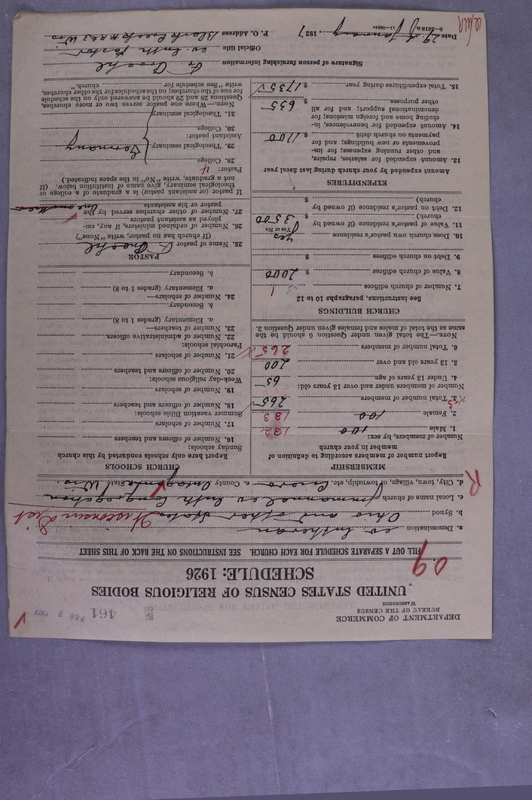 DEPARTMENT OF COMMERCE
BUREAU OF THE CENSUS
WASHINGTON
461
FEB 2 1927
UNITED STATES CENSUS OF RELIGIOUS BODIES
SCHEDULE: 1926
09
FILL OUT A SEPARATE SCHEDULE FOR EACH CHURCH. SEE INSTRUCTIONS ON THE BACK OF THIS SHEET
a. Denomination ev Lutheran
b. Synod Ohio and other states Wisconsin Dist
c. Local name of church Immanuel ev Luth Congregation
d. City, town, village, of township, etc. Cicero e. County Outagamie State Wis.
MEMBERSHIP
Report number of members according to definition of member in your church
Number of members, by sex:
1. Male 100 132
2. Female 100 133
3. Total number of members 265
Number of members under and over 13 years old:
4. Under 13 years of age 65
5. 13 years old and over 200
6. Total number of members 265
Note.—The total given under Question 6 should be the same as the total of males and females given under Question 3.
CHURCH BUILDINGS
See instructions, paragraphs 10 to 12
7. Number of church edifices 1
8. Value of church edifices $ 2000
9. Debt on church edifices $
10. Does church own pastor's residence yes
(Yes or No)
11. Value of pastor's residence (if owned by church) $ 3500
12. Debt on pastor's residence (if owned by church) $
EXPENDITURES
Amount expended by your church during last fiscal year
13. Amount expended for salaries, repairs, and other running expenses; for improvements or new buildings; and for payments on church debt $ 1100
14. Amount expended for benevolences, including home and foreign missions; for denominational support; and for all other purposes $ 635
15. Total expenditures during year $ 1735
CHURCH SCHOOLS
Report here only schools conducted by this church
Sunday schools:
16. Number of officers and teachers
17. Number of scholars
Summer vacation Bible schools:
18. Number of officers and teachers
19. Number of scholars
Week-day religious schools:
20. Number of officers and teachers
21. Number of scholars
Parochial schools:
22. Number of administrative officers
23. Number of teachers—
a. Elementary (grades 1 to 8)
b. Secondary
24. Number of scholars—
a. Elementary (grades 1 to 8)
b. Secondary
PASTOR
25. Name of pastor
(If church has no pastor, write "None")
26. Number of ordained ministers, if any, employed as assistant pastors
27. Number of other churches served by the pastor or his assistants One another
If pastor (or assistant pastor) is a graduate of a college or theological seminary, give name of institution below. (If not a graduate, write "No" in the space indicated.)
Pastor:
28. College
29. Theological seminary Germany
Assistant pastor:
30. College
31. Theological seminary
Note.—When one pastor serves two or more churches, Questions 28 and 29 should be answered only on the schedule for one of the churches; on the schedules for the other churches, write "See schedule for church."
Signature of person furnishing information
Official title ev. Luth pastor
P. O. Address Black Creek Wis
Date 29 of January 1927